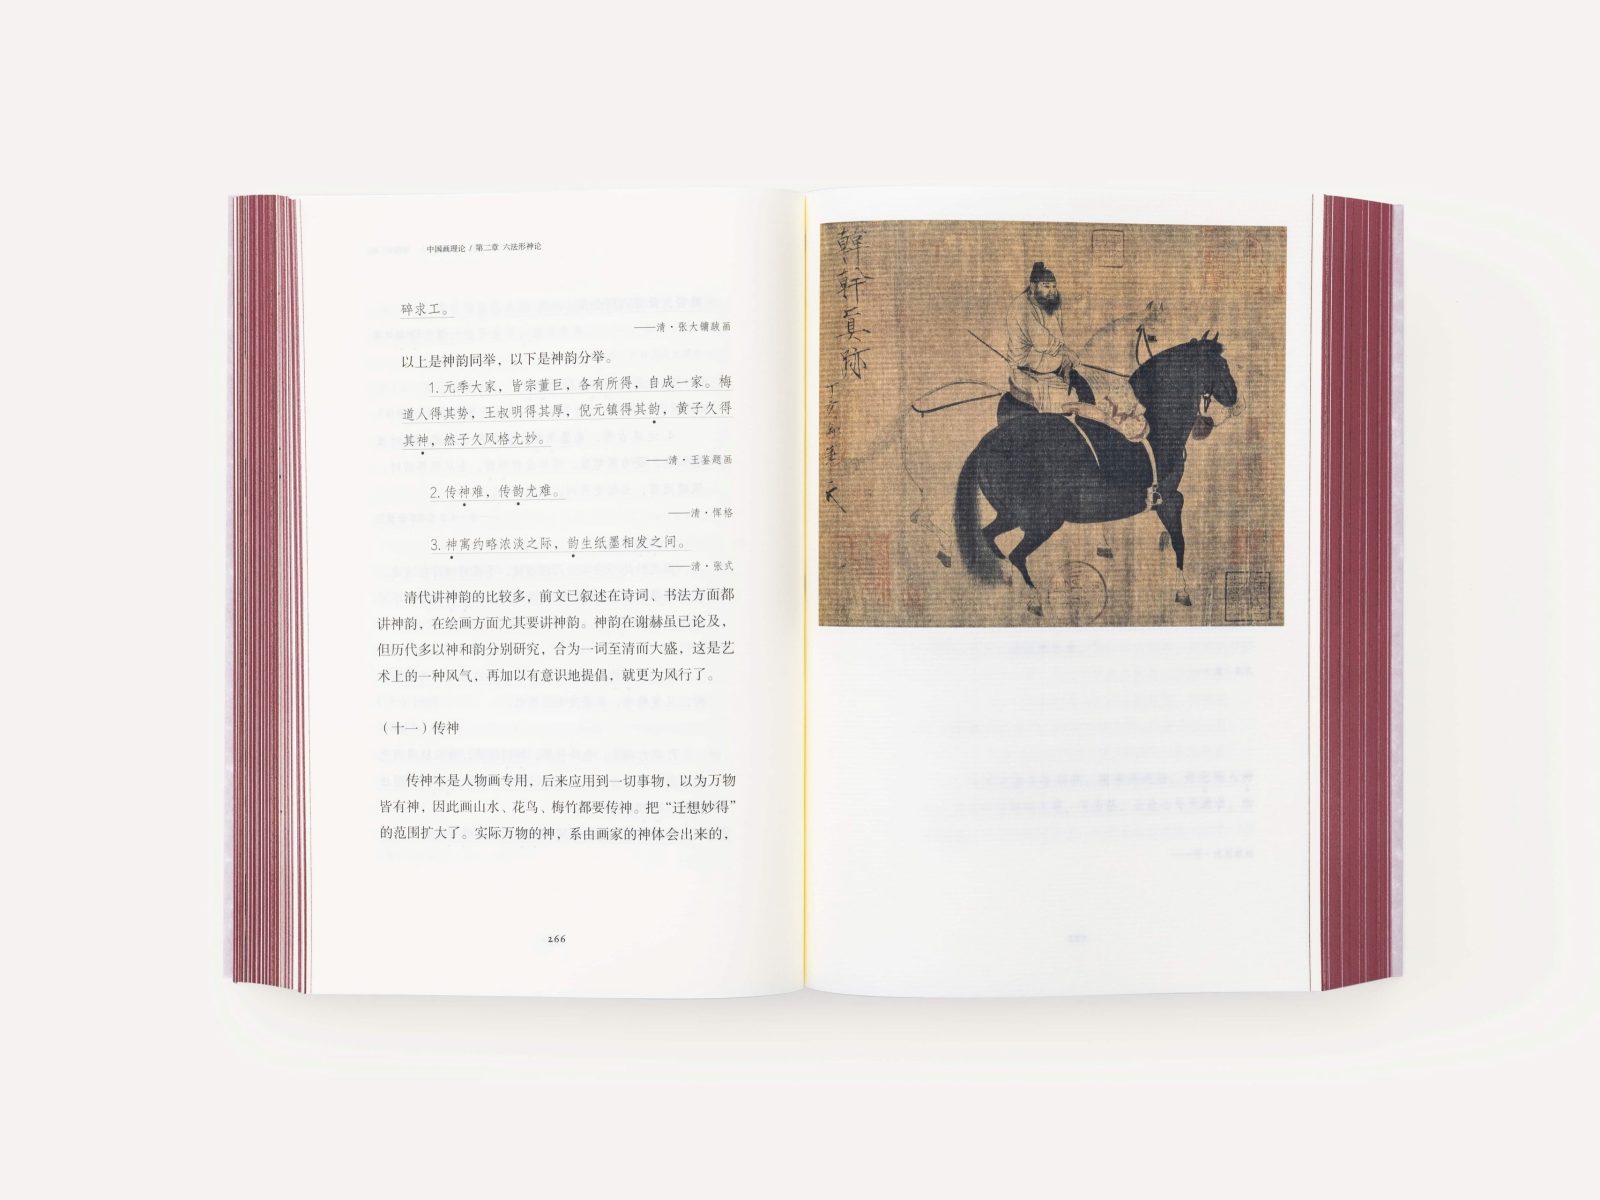 中国画理论 / 第二章 六法形神论
碎求工。
——清·张大镛跋画
以上是神韵同举，以下是神韵分举。
1. 元季大家，皆宗董巨，各有所得，自成一家。梅
道人得其势，王叔明得其厚，倪元镇得其韵，黄子久得
其神，然子久风格尤妙。
——清·王鉴题画
2. 传神难，传韵尤难。
——清·恽格
3. 神寓约略浓淡之际，韵生纸墨相发之间。
——清·张式
清代讲神韵的比较多，前文已叙述在诗词、书法方面都
讲神韵，在绘画方面尤其要讲神韵。神韵在谢赫虽已论及，
但历代多以神和韵分别研究，合为一词至清而大盛，这是艺
术上的一种风气，再加以有意识地提倡，就更为风行了。
（十一）传神
传神本是人物画专用，后来应用到一切事物，以为万物
皆有神，因此画山水、花鸟、梅竹都要传神。把“迁想妙得”
的范围扩大了。实际万物的神，系由画家的神体会出来的，
266
韩幹真跡
丁亥御筆